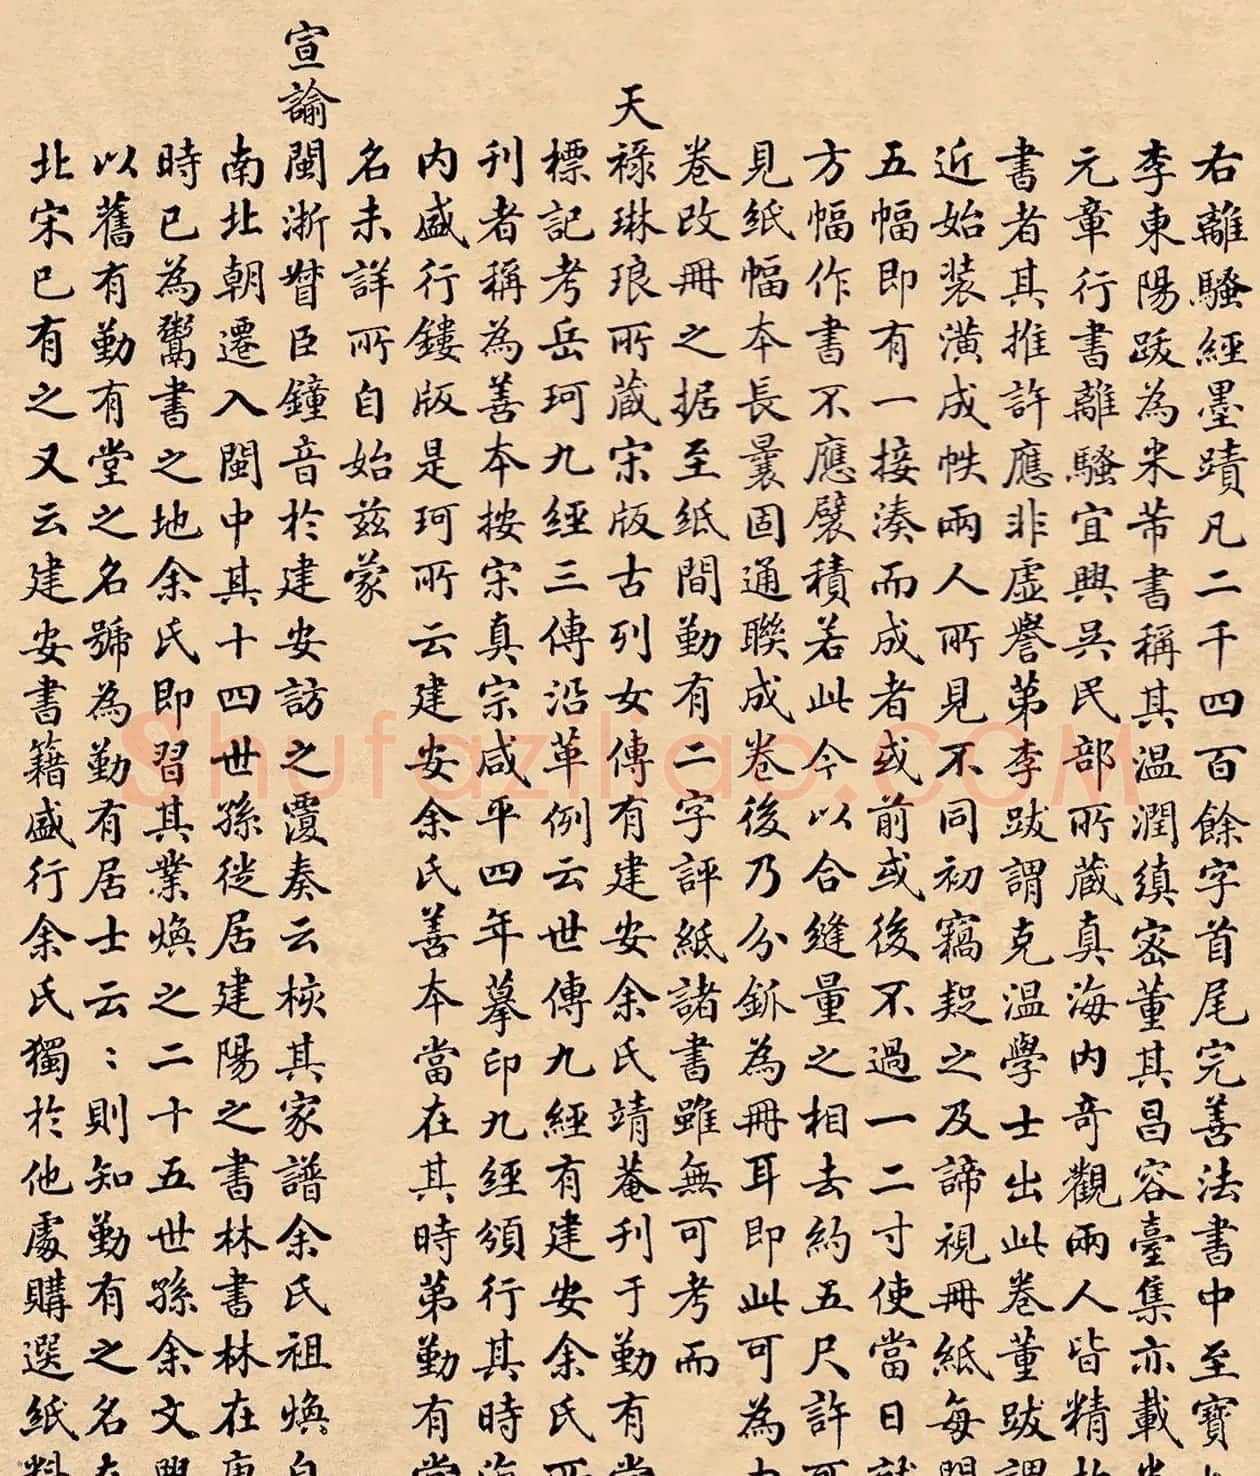 右離騷經墨蹟凡二千四百餘字首尾完善法書中至寶
李東陽跋為米芾書稱其温潤縝密董其昌容臺集亦載
元章行書離騷宜興吳民部所藏真海内奇觀兩人皆精
書者其推許應非虛譽第李跋謂克温學士出此卷董跋
近始装潢成帙兩人所見不同初竊疑之及諦視冊紙每
五幅即有一接湊而成者或前或後不過一二寸使當日
方幅作書不應襞積若此今以合縫量之相去約五尺許
見紙幅本長曩固通聯成卷後乃分鈲為冊耳即此可為
卷改冊之据至紙間勤有二字評紙諸書雖無可考而
天祿琳琅所藏宋版古列女傳有建安余氏靖菴刊于勤有
標記考岳珂九經三傳沿革例云世傳九經有建安余氏
刊者稱為善本按宋真宗咸平四年摹印九經頒行其時
内盛行鏤版是珂所云建安余氏善本當在其時第勤有
名未詳所自始兹蒙
宣諭閩浙督臣鐘音於建安訪之覆奏云核其家譜余氏祖煥
南北朝遷入閩中其十四世孫徙居建陽之書林書林在
時已為鬻書之地余氏即習其業煥之二十五世孫余文
以舊有勤有堂之名號為勤有居士云：則知勤有之名
北宋已有之又云建安書籍盛行余氏獨於他處購選紙
Shufaziliao.COM